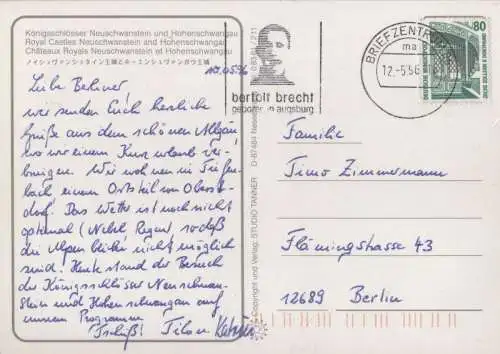 Königsschlösser Neuschwanstein und Hohenschwangau
Royal Castles Neuschwanstein and Hohenschwangau
Châteaux Royals Neuschwanstein et Hohenschwangau
ノイシュヴァンシュタイン王城とホーエンシュヴァンガウ王城
10.05.96
Liebe
wir senden Euch herzliche
Grüße aus dem schönen Allgäu
wo wir einen Kurzurlaub ver-
bringen. Wir wohnen in Tiefen-
bach einem Ortsteil von Oberst-
dorf. Das Wetter ist noch nicht
optimal (Nebel, Regen) so daß
die Alpenblicke nicht möglich
sind. Heute stand der Besuch
der Königsschlösser Neuschwan-
stein und Hohenschwangau auf
unserem Programm
Tschüß!
Copyright und Verlag: STUDIO TANNER
D-87484
bertolt brecht
geboren in augsburg
BRIEFZENTRUM
12.-5.96
80
Familie
Timo Zimmermann
Flämingstrasse 43
12689 Berlin